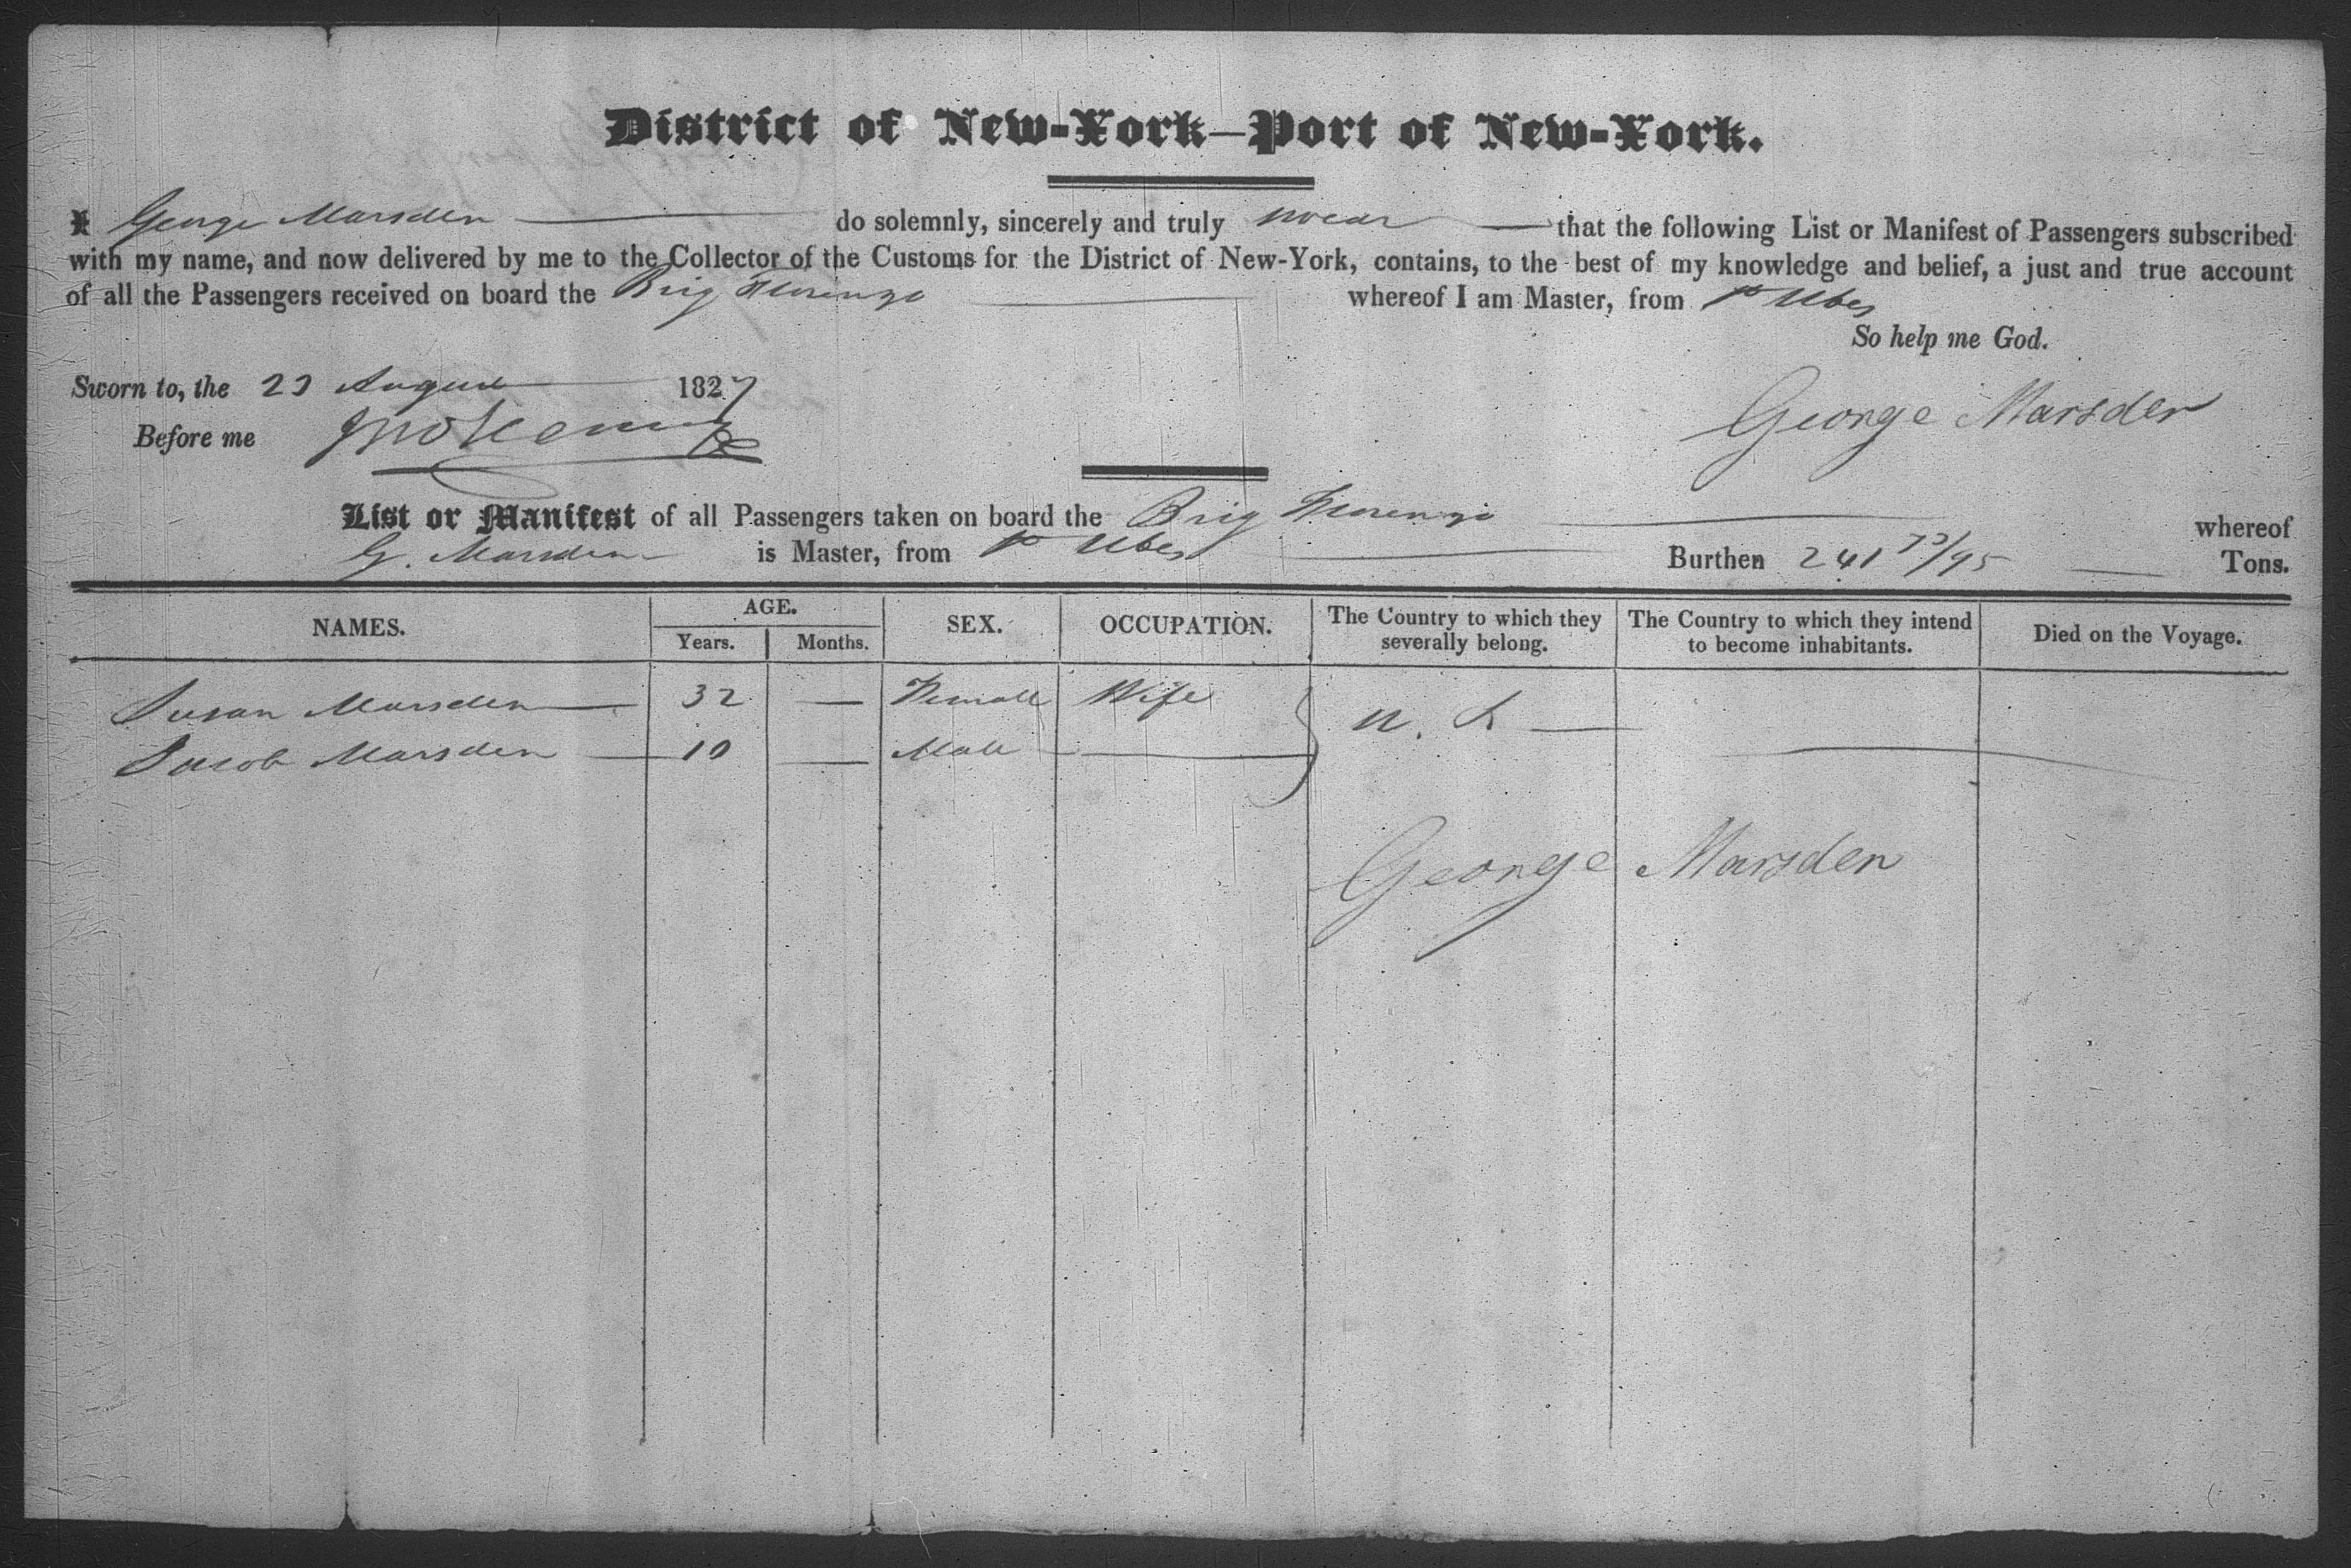 District of New-York—Port of New-York.
I George Marsden do solemnly, sincerely and truly swear that the following List or Manifest of Passengers subscribed
with my name, and now delivered by me to the Collector of the Customs for the District of New-York, contains, to the best of my knowledge and belief, a just and true account
of all the Passengers received on board the Brig whereof I am Master, from Ubes
So help me God.
Sworn to, the 23 August 1827
George Marsden
Before me
List or Manifest of all Passengers taken on board the Brig whereof
G. Marsden is Master, from Ubes Burthen 241 73/95 Tons.
NAMES. AGE. Years. Months. SEX. OCCUPATION. The Country to which they severally belong. The Country to which they intend to become inhabitants. Died on the Voyage.
Susan Marsden 32 — Female Wife U. S.
Jacob Marsden 10 — Male —
George Marsden